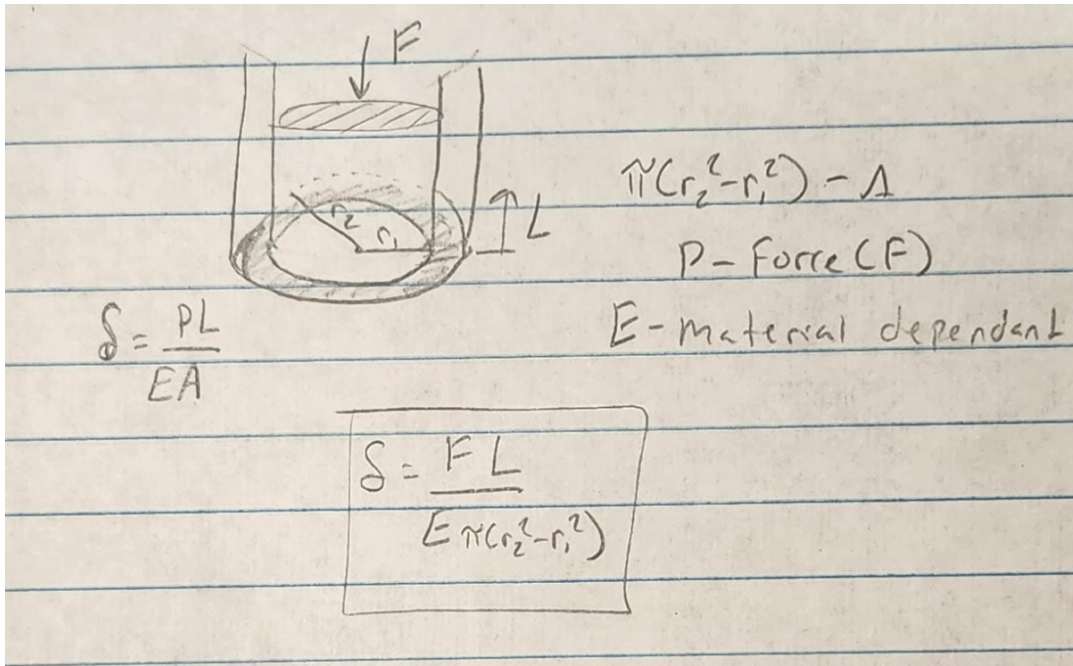 F
π(r₂²-r₁²) - A
r₂
r₁
L
P - Force (F)
E - material dependant
δ = PL
EA
δ = F L
E π(r₂²-r₁²)